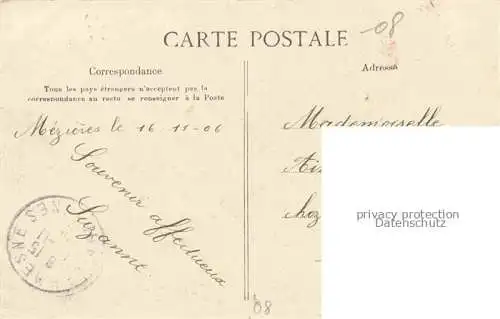 08
CARTE POSTALE
Correspondance
Adresse
Tous les pays étrangers n'acceptent pas la
correspondance au recto se renseigner à la Poste
Mézières le 16 11 06
Souvenir affectueux
Suzanne
Mademoiselle
chez
privacy protection
watermark
08